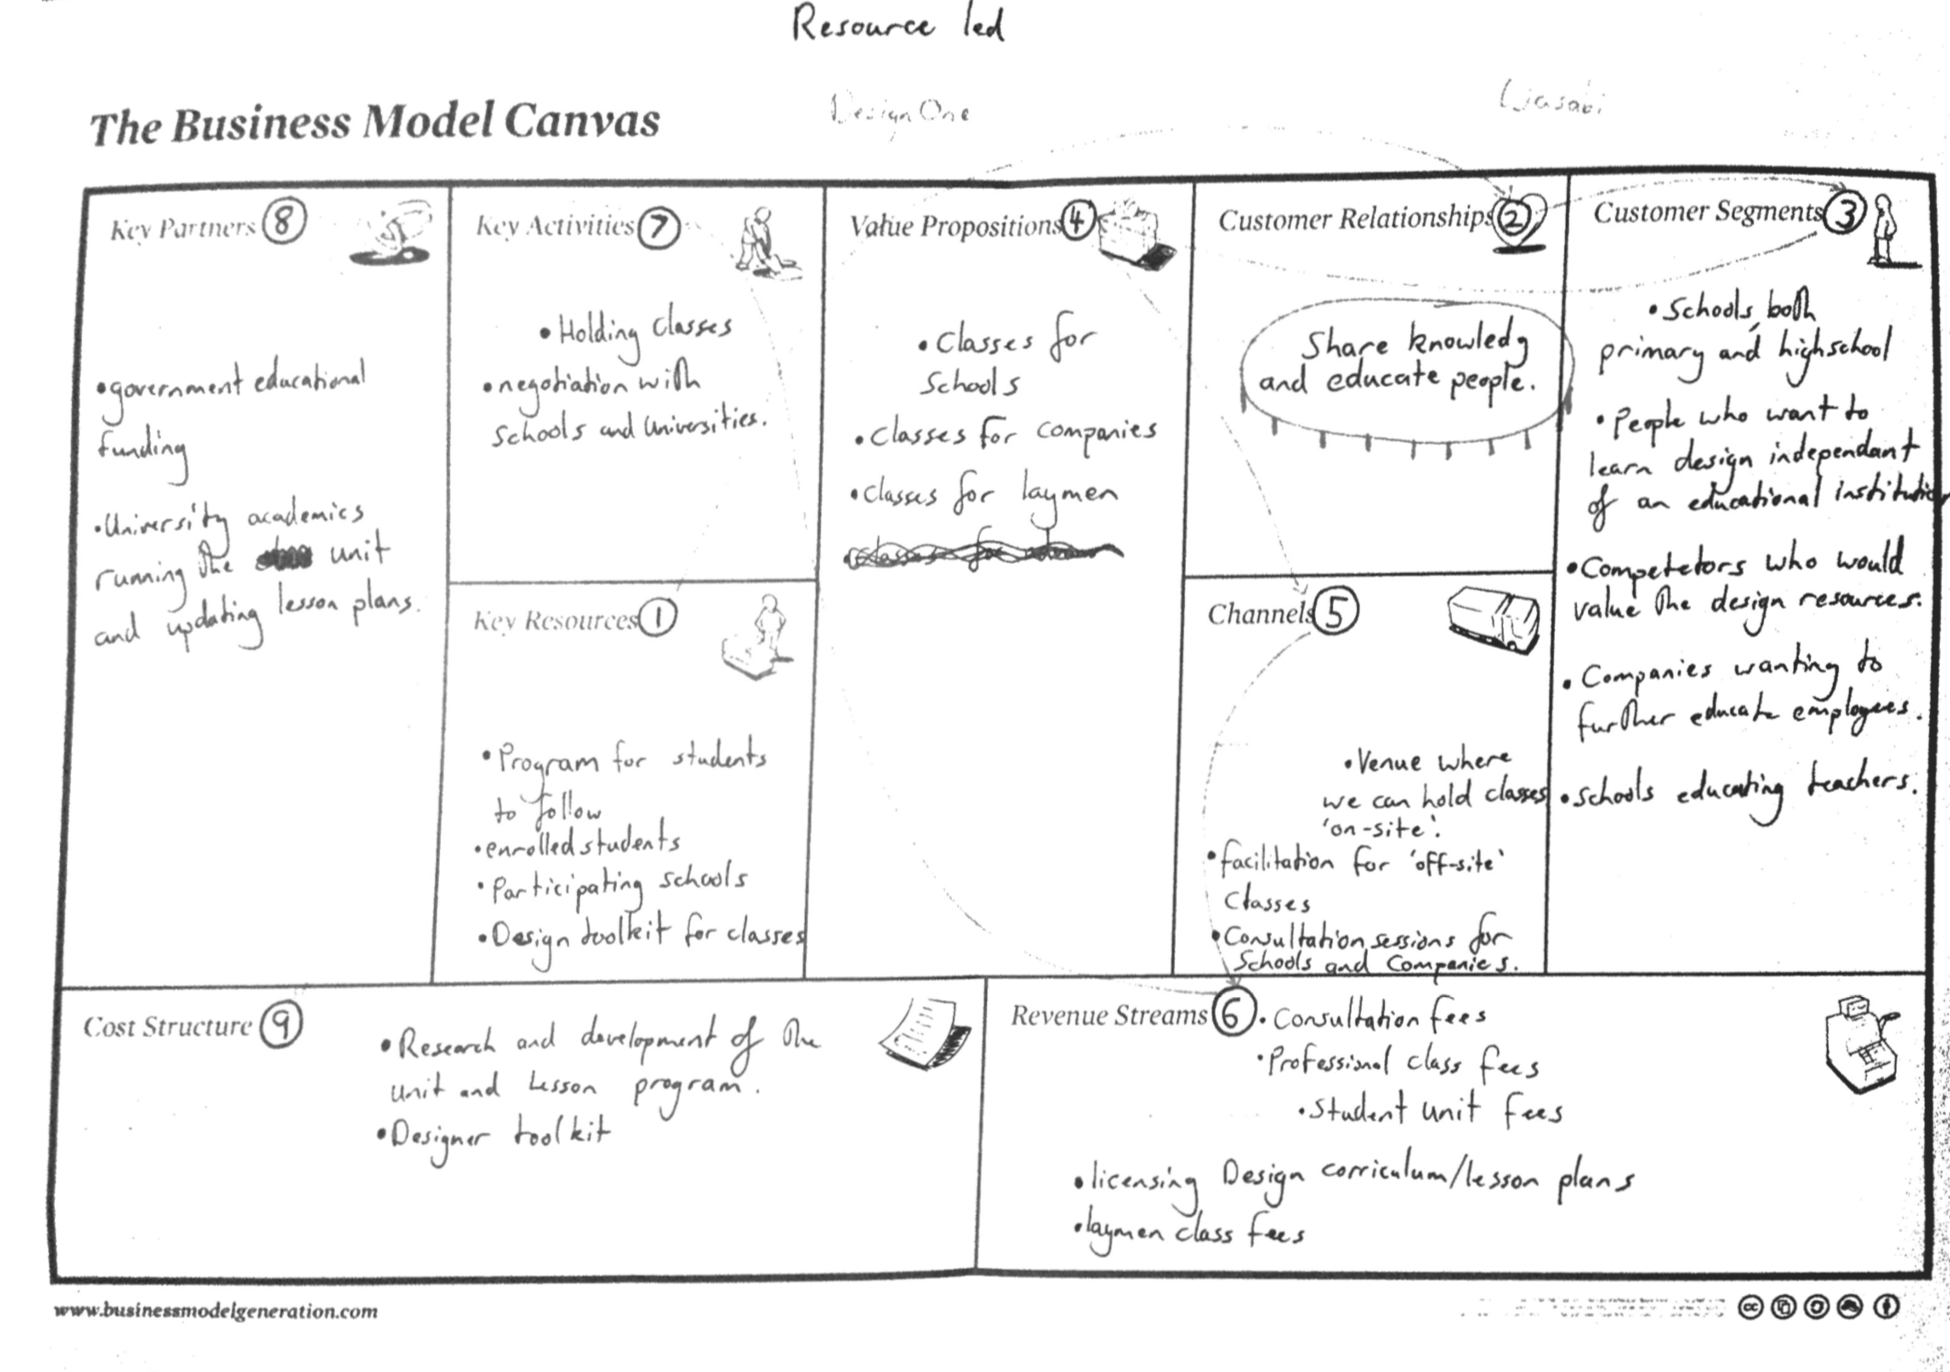 Resource led
The Business Model Canvas
Design One
Wasabi
Key Partners 8
•government educational
funding
•University academics
running the unit
and updating lesson plans.
Key Activities 7
•Holding classes
•negotiation with
Schools and Universities.
Key Resources 1
•Program for students
to follow
•enrolled students
•Participating schools
•Design toolkit for classes
Value Propositions 4
•Classes for
Schools
•Classes for companies
•Classes for laymen
Customer Relationships 2
Share knowledg
and educate people.
Channels 5
•Venue where
we can hold classes
'on-site'.
•facilitation for 'off-site'
Classes
•Consultation sessions for
Schools and Companies.
Customer Segments 3
•Schools, both
primary and highschool
•People who want to
learn design independant
of an educational institution
•Competetors who would
value the design resources.
•Companies wanting to
further educate employees.
•Schools educating teachers.
Cost Structure 9
•Research and development of the
unit and lesson program.
•Designer toolkit
Revenue Streams 6
•Consultation fees
•Professional class fees
•Student unit fees
•licensing Design corriculum/lesson plans
•laymen class fees
www.businessmodelgeneration.com
cc